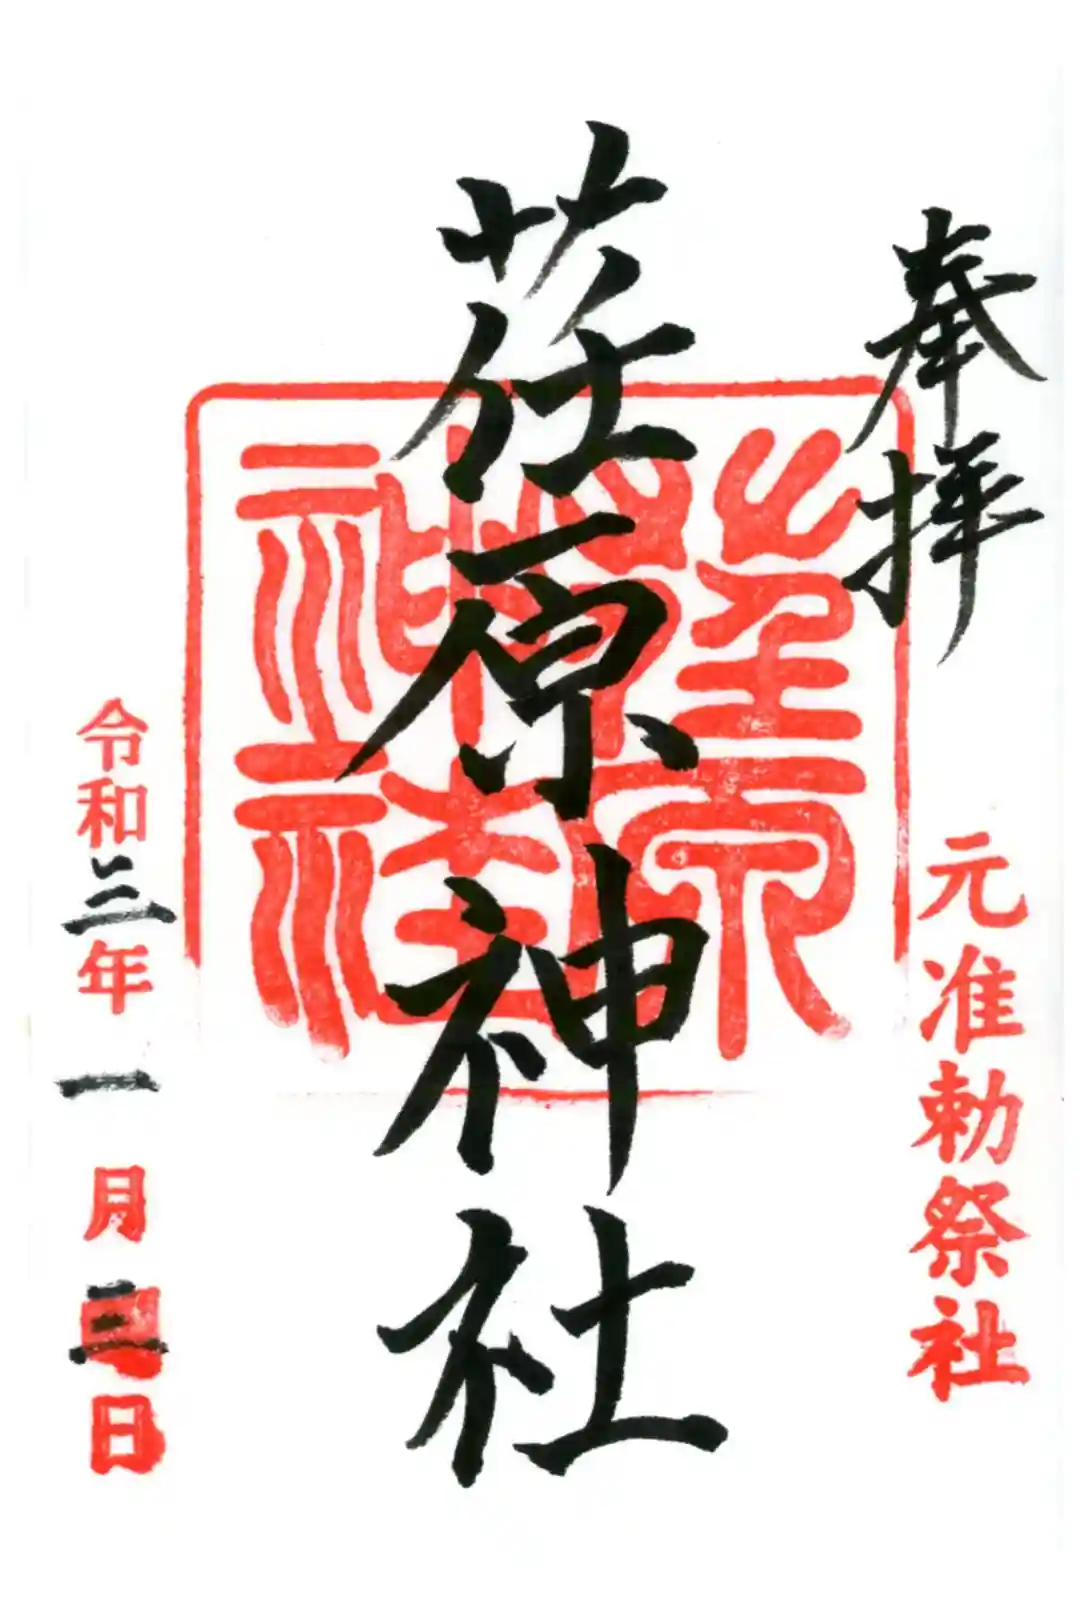 奉拝
元准勅祭社
荏原神社
荏原神社
令和三年一月三日